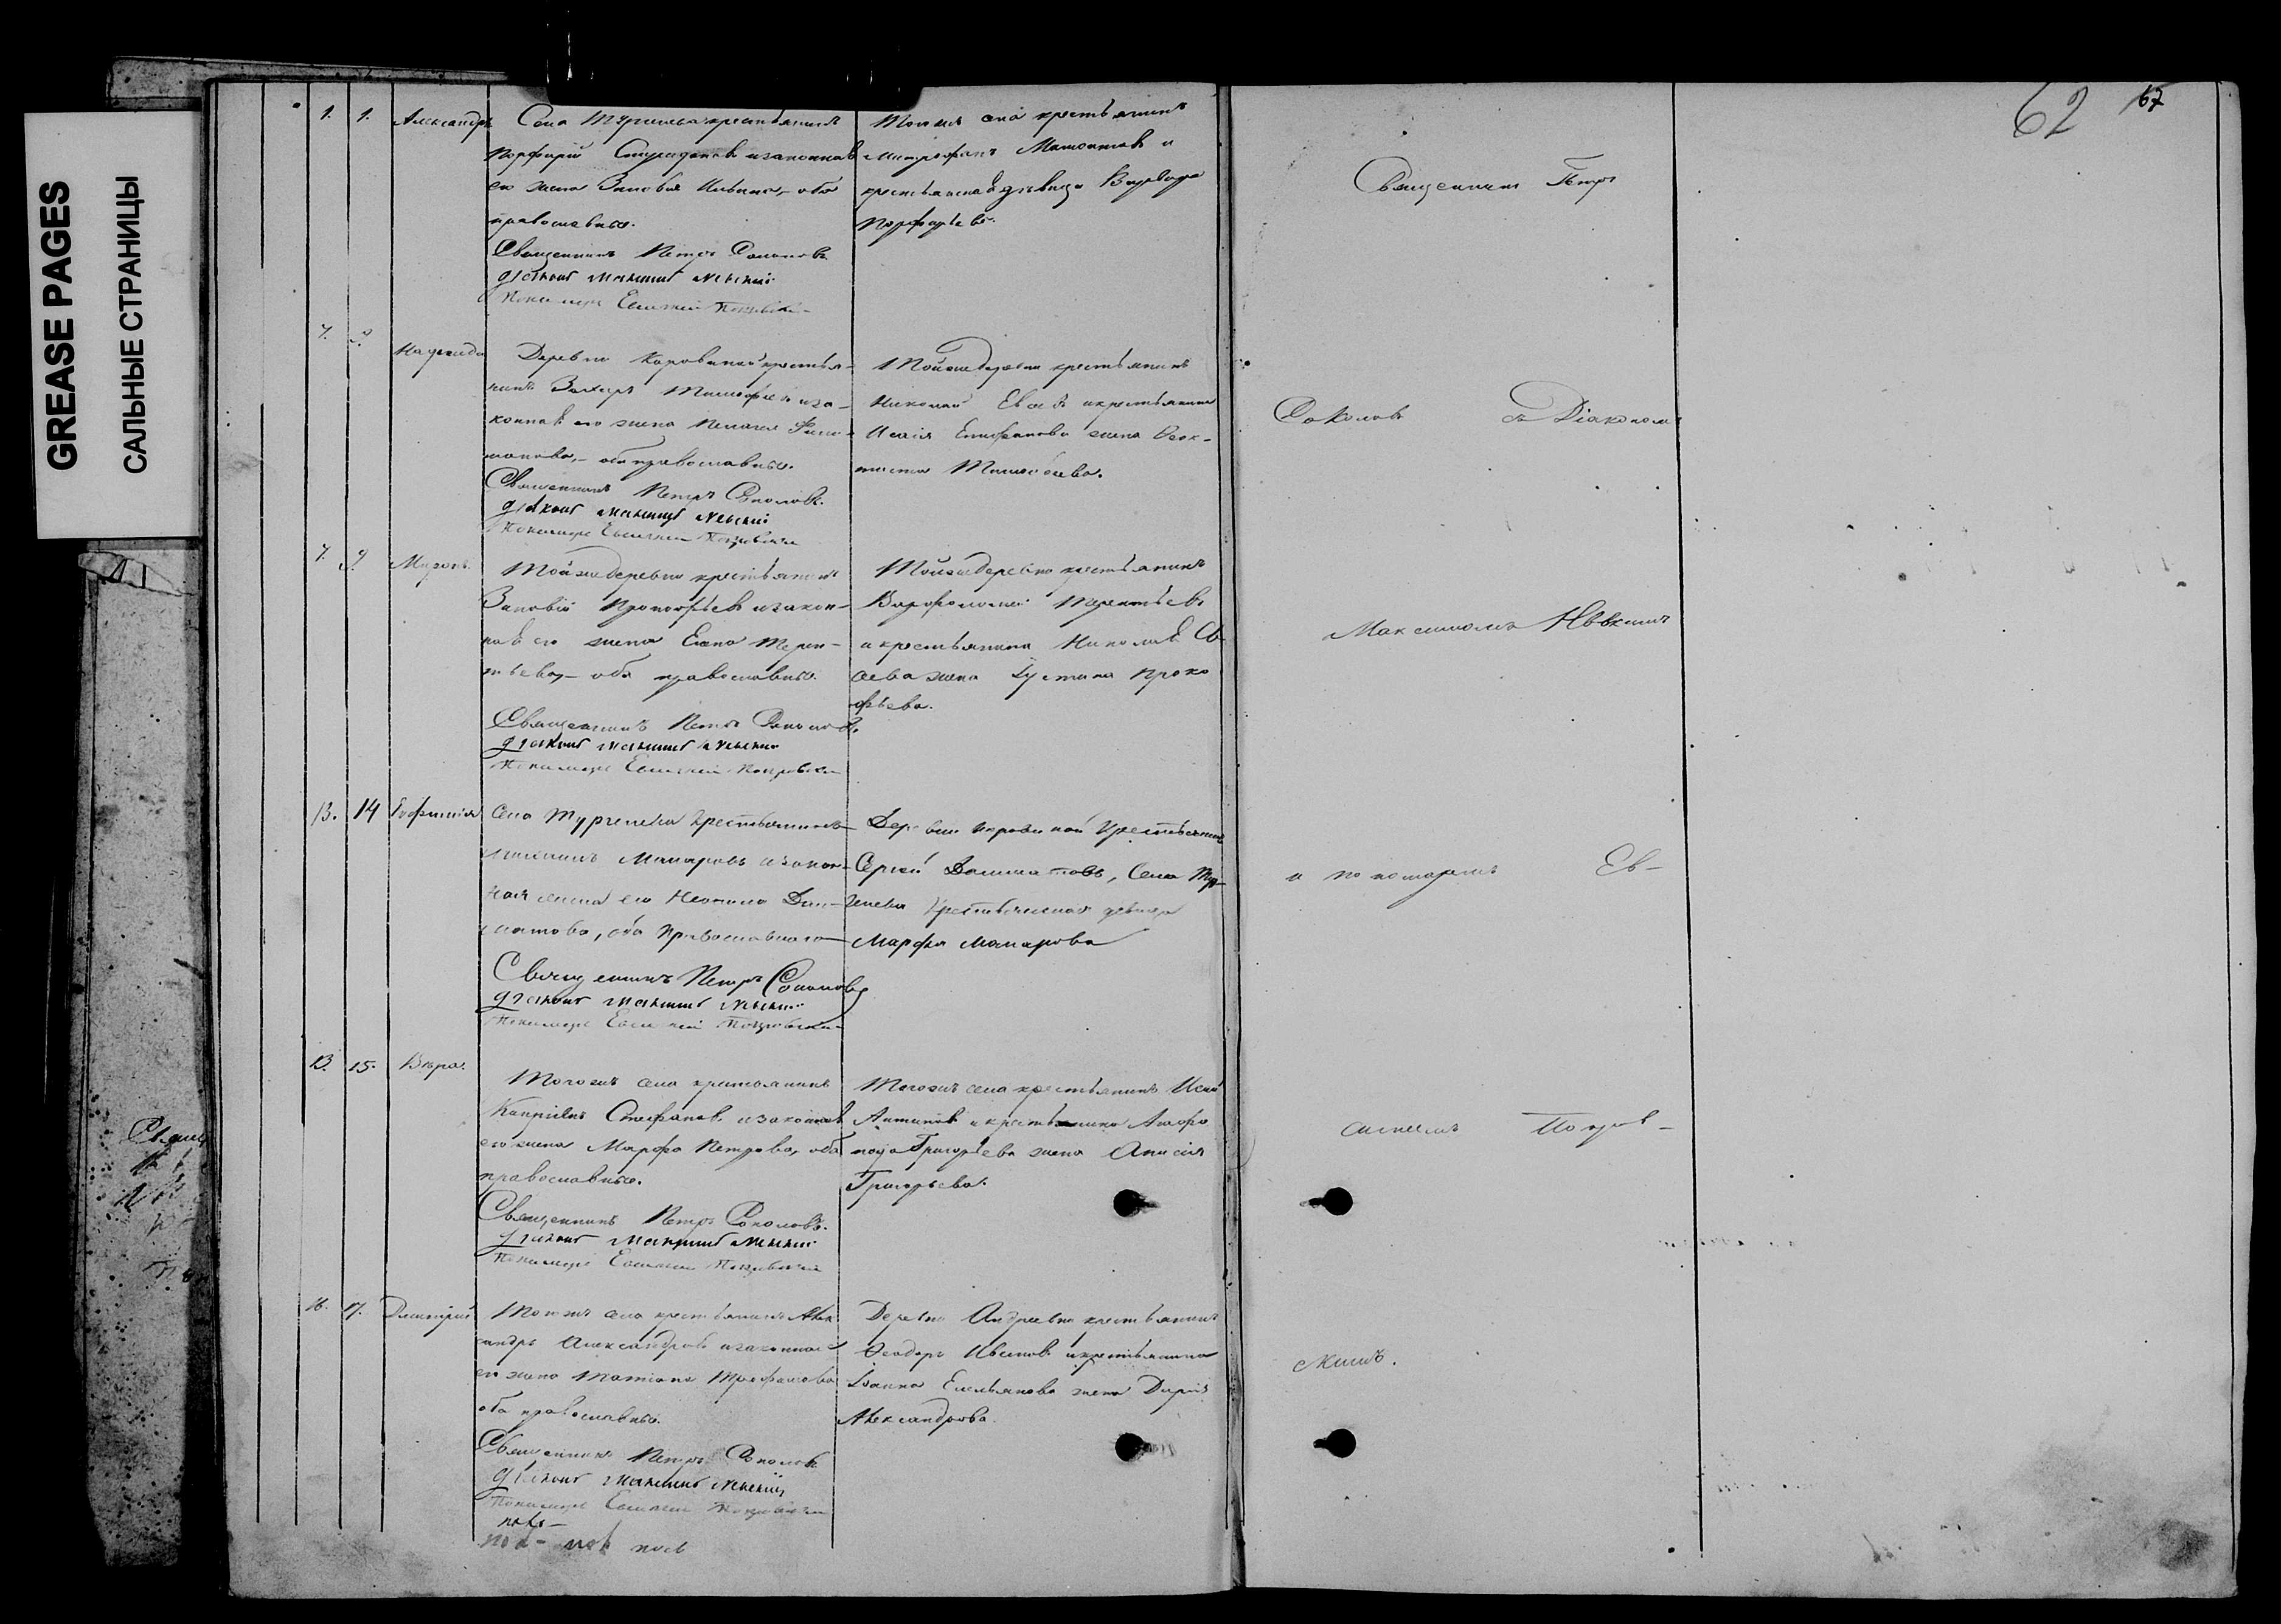 GREASE PAGES
САЛЬНЫЕ СТРАНИЦЫ
62 67
1. 1. Александръ
Села Тургенева крестьянинъ
Порфирій Спиридоновъ и законная
его жена Зиновія Ильина, оба
православные.
Священникъ Петръ Соколовъ
Діаконъ Максимъ Невскій
Пономарь Евсигній Покровскій
Тогоже села крестьянинъ
Митрофанъ и
крестьянская дѣвица Варвара
Порфирьева.
7. 9. Надежда
Деревни Коровиной крестья-
нинъ Захаръ Тимофеевъ и за-
конная его жена Пелагея
оба православные.
Священникъ Петръ Соколовъ.
Діаконъ Максимъ Невскій
Пономарь Евсигній Покровскій
Тойже деревни крестьянинъ
Николай Евсевъ и крестьянина
Исаія Епифанова жена Ѳеок-
тиста
7. 9. Миронъ.
Тойже деревни крестьянинъ
Зиновій Прокофьевъ и закон-
ная его жена Елена Терен-
тьева, оба православные.
Священникъ Петръ Соколовъ.
Діаконъ Максимъ Невскій
Пономарь Евсигній Покровскій
Тойже деревни крестьянинъ
Варфоломей Терентьевъ
и крестьянина Николая Ев-
сева жена Іустина Проко
фьева.
13. 14 Евфимія
Села Тургенева крестьянинъ
Макаровъ и закон-
ная жена его Неонила Дал-
матова, оба Православнаго
Священникъ Петръ Соколовъ
Діаконъ Максимъ Невскій
Пономарь Евсигній Покровскій
Деревни Коровиной Крестьянинъ
Сергѣй Далматовъ, Села Тур-
генева Крестьянская девица
Марфа Макарова
13. 15. Вѣра.
Тогожъ села крестьянинъ
Капріянъ Стефановъ и законная
его жена Марфа Петрова, оба
православные.
Священникъ Петръ Соколовъ.
Діаконъ Максимъ Невскій
Пономарь Евсигній Покровскій
Тогожъ села крестьянинъ
Антиповъ и крестьянина
Григорьева жена Анисія
Григорьева.
16. 17. Димитрій
Тогожъ села крестьянинъ Алек
сандръ Александровъ и законная
его жена Татіана Трофимова
оба православные.
Священникъ Петръ Соколовъ
Діаконъ Максимъ Невскій
Пономарь Евсигній Покровскій
Деревни Андреевки крестьянинъ
Ѳеодоръ Ивановъ и крестьянина
Іоанна Емельянова жена Дарія
Александрова.
Священникъ Петръ
Соколовъ съ Діакономъ
Максимомъ Невскимъ
и пономаремъ Ев-
сигніемъ Покров-
скимъ.